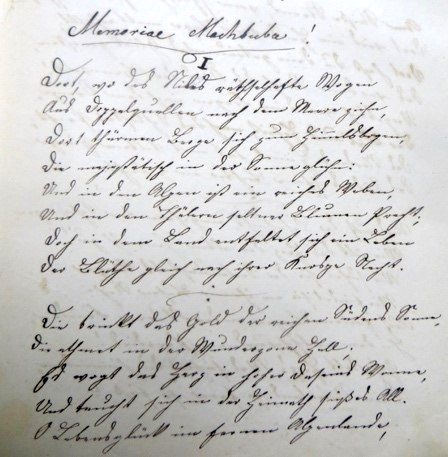 Memoriae Machbuba!
I
Dort, wo des Niles räthselhafte Wogen
Aus Doppelquellen nach dem Meere ziehn,
Dort thürmen Berge sich zum Himmelsbogen,
Die majestätisch in der Sonne glühn:
Und in den Alpen ist ein reiches Weben
Und in den Thälern seltner Blumen Pracht;
Doch in dem Land entfaltet sich ein Leben
Der Blüthe gleich nach ihrer Knospe Nacht.
Sie trinkt das Gold der reichen Südens Sonne
Sie athmet in der Wunderzone Hall,
Es wogt das Herz in hoher Daseins Wonne,
Und taucht sich in der Heimath süßes All.
O Lebensglück im fernen Alpenlande,